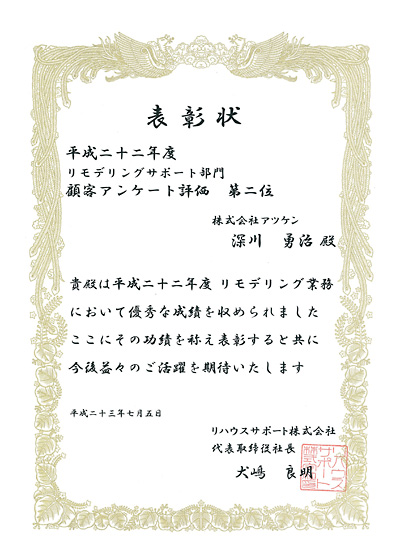 表彰状
平成二十二年度
リモデリングサポート部門
顧客アンケート評価 第二位
株式会社アツケン
深川 勇治 殿
貴殿は平成二十二年度 リモデリング業務
において優秀な成績を収められました
ここにその功績を称え表彰すると共に
今後益々のご活躍を期待いたします
平成二十三年七月五日
リハウスサポート株式会社
代表取締役社長
犬嶋 良明